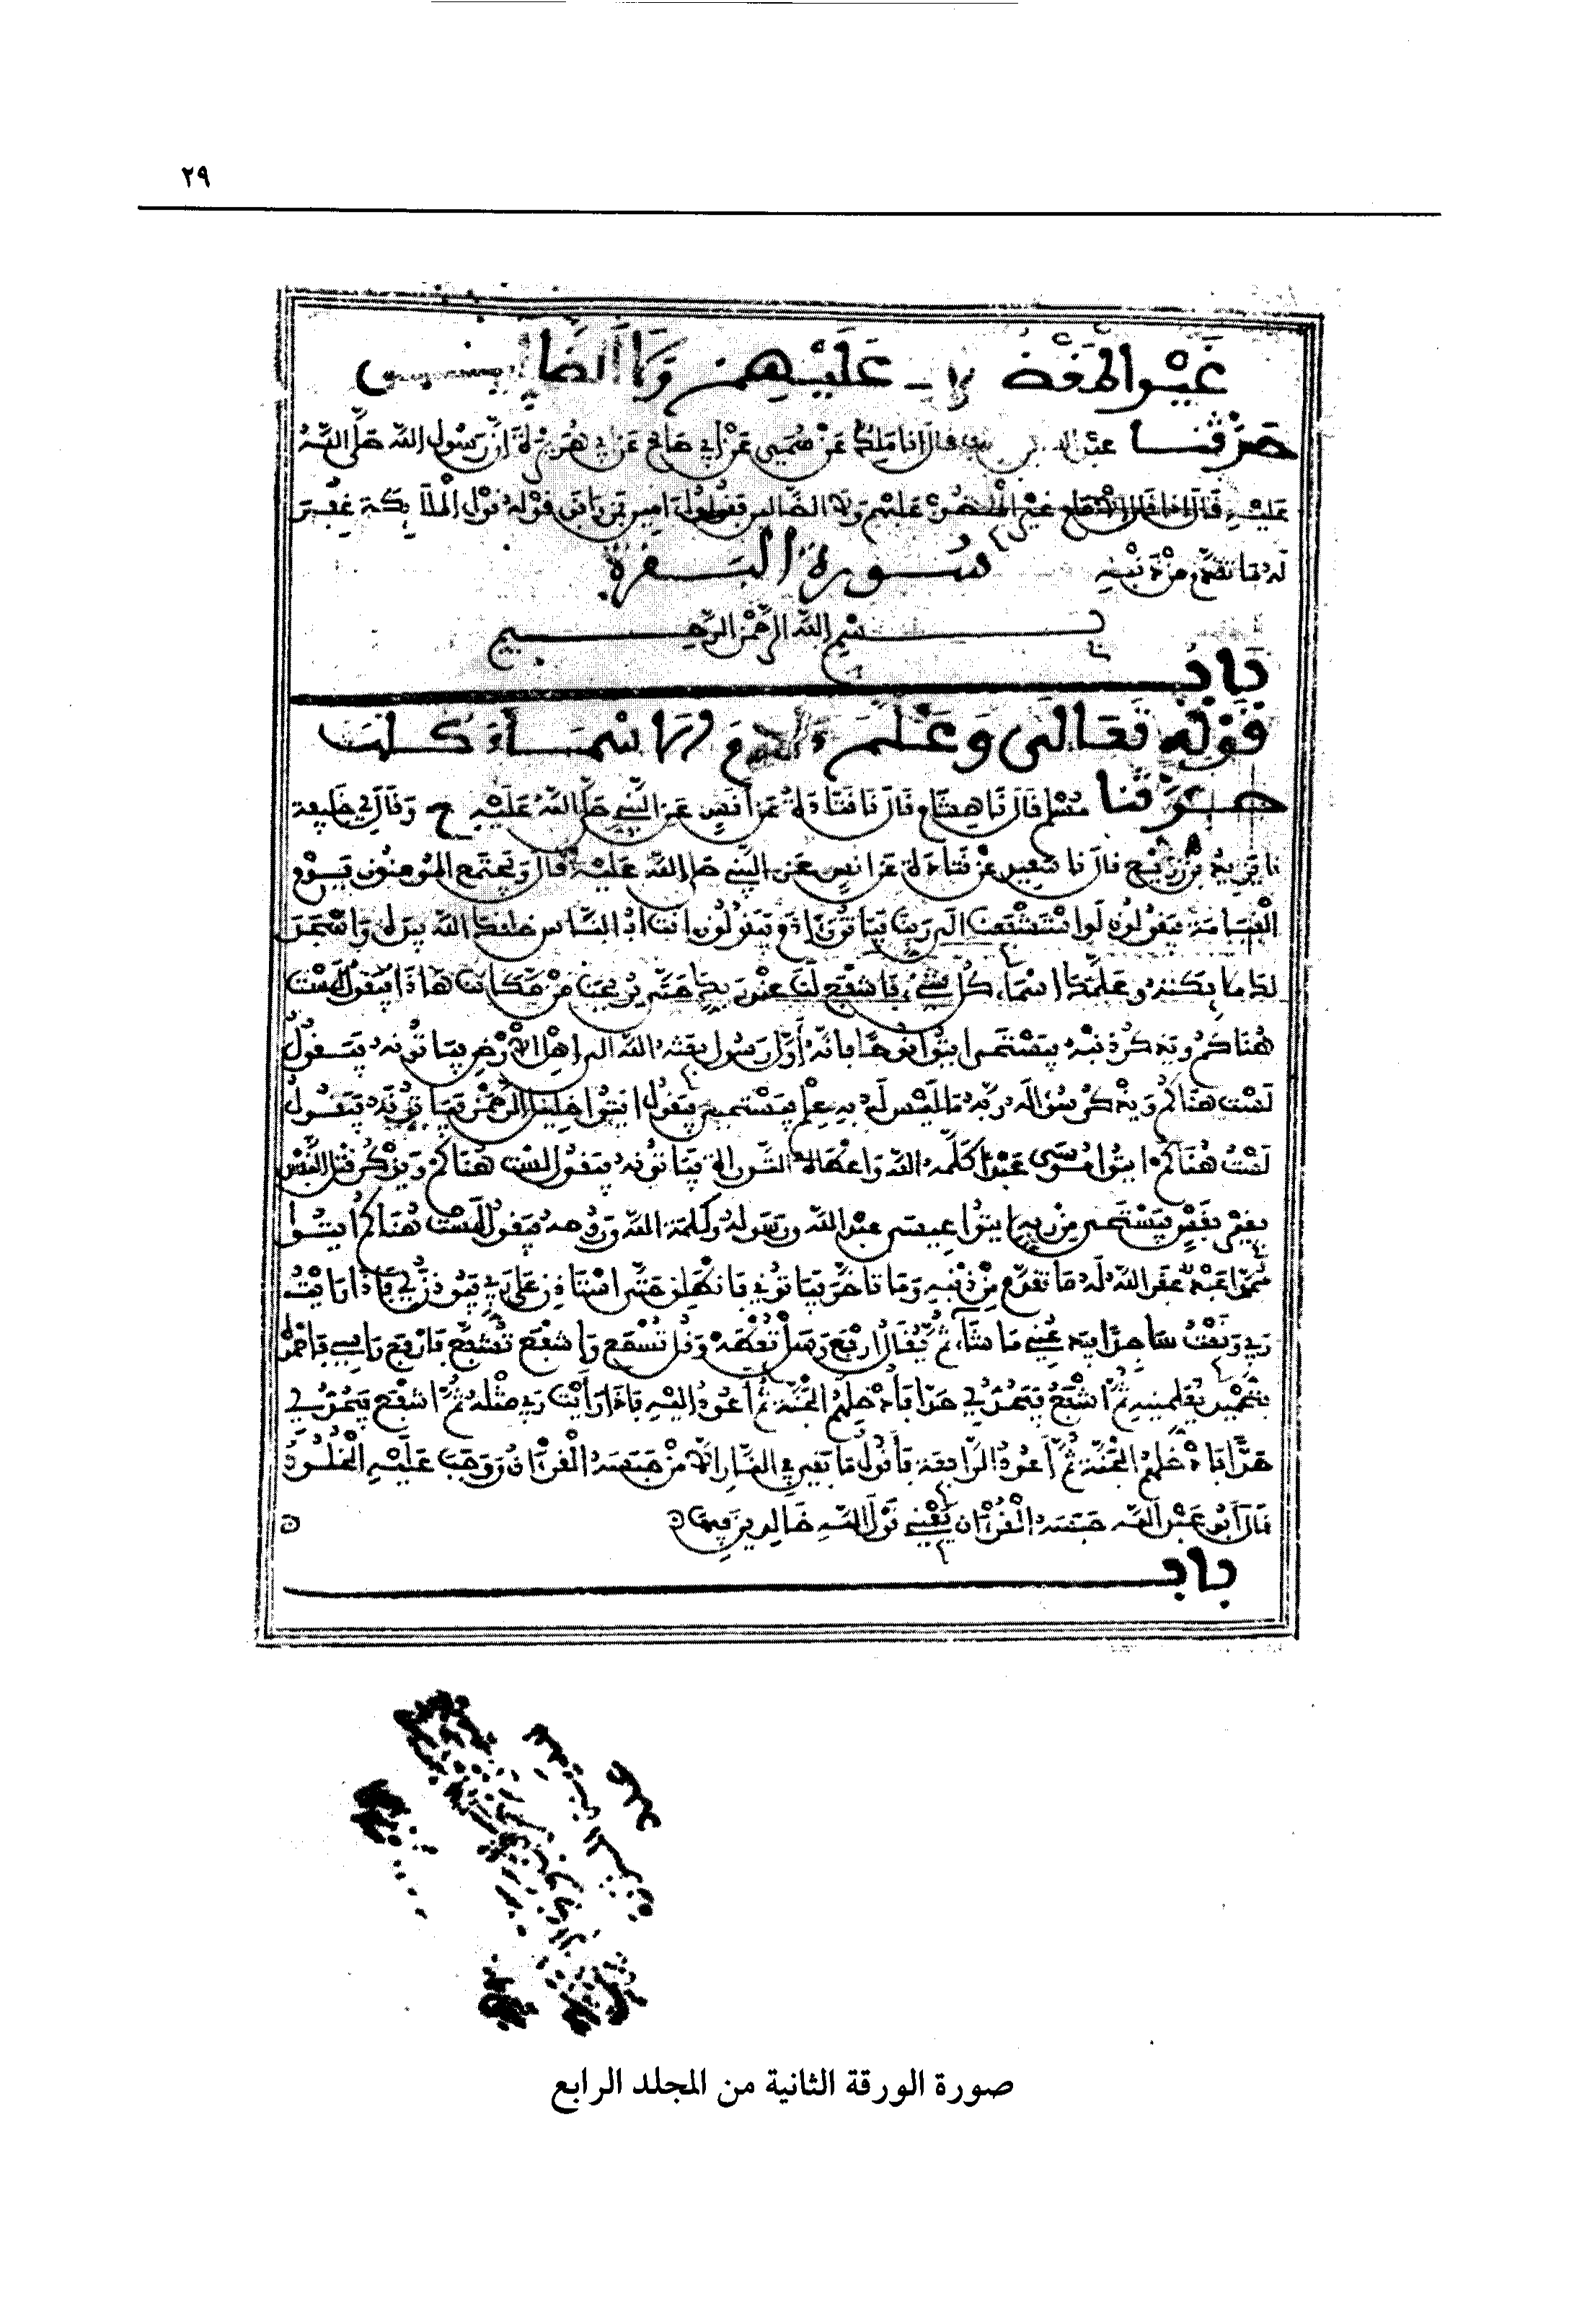 ٢٩
غَيْرِ المَغْضُـ ـعَلَيْهِمْ وَلَا الضَّا
حَدَّثَنَا عَبْدُ اللـ قَالَ أَنَا مَلِكٌ عَنْ سُمَيٍّ عَنْ أَبِي صَالِحٍ عَنْ أَبِي هُرَيْرَةَ أَنَّ رَسُولَ اللَّهِ صَلَّى اللَّهُ
عَلَيْهِ قَالَ إِذَا قَالَ الْإِمَامُ غَيْرِ الْمَغْضُوبِ عَلَيْهِمْ وَلَا الضَّالِّينَ فَقُولُوا ءَامِينَ فَمَنْ وَافَقَ قَوْلُهُ قَوْلَ الْمَلَائِكَةِ غُفِرَ
لَهُ مَا تَقَدَّمَ مِنْ ذَنْبِهِ سُورَةُ الْبَقَرَةِ
بِسْمِ اللَّهِ الرَّحْمَنِ الرَّحِيمِ
بَابُ
قَوْلِهِ تَعَالَى وَعَلَّمَ ءَادَمَ الْأَسْمَاءَ كُلَّهَا
حَدَّثَنَا مُسْلِمٌ قَالَ نَا هِشَامٌ قَالَ نَا قَتَادَةُ عَنْ أَنَسٍ عَنِ النَّبِيِّ صَلَّى اللَّهُ عَلَيْهِ ح وَقَالَ لِي خَلِيفَةُ
نَا يَزِيدُ بْنُ زُرَيْعٍ قَالَ نَا سَعِيدٌ عَنْ قَتَادَةَ عَنْ أَنَسٍ عَنِ النَّبِيِّ صَلَّى اللَّهُ عَلَيْهِ قَالَ وَيَجْتَمِعُ الْمُؤْمِنُونَ يَوْمَ
الْقِيَامَةِ فَيَقُولُونَ لَوِ اسْتَشْفَعْنَا إِلَى رَبِّنَا فَيَأْتُونَ ءَادَمَ فَيَقُولُونَ أَنْتَ أَبُو النَّاسِ خَلَقَكَ اللَّهُ بِيَدِهِ وَأَسْجَدَ
لَكَ مَلَائِكَتَهُ وَعَلَّمَكَ أَسْمَاءَ كُلِّ شَيْءٍ فَاشْفَعْ لَنَا عِنْدَ رَبِّكَ حَتَّى يُرِيحَنَا مِنْ مَكَانِنَا هَاذَا فَيَقُولُ لَسْتُ
هُنَاكُمْ وَيَذْكُرُ ذَنْبَهُ فَيَسْتَحِي ايتُوا نُوحًا فَإِنَّهُ أَوَّلُ رَسُولٍ بَعَثَهُ اللَّهُ إِلَى أَهْلِ الْأَرْضِ فَيَأْتُونَهُ فَيَقُولُ
لَسْتُ هُنَاكُمْ وَيَذْكُرُ سُؤَالَهُ رَبَّهُ مَا لَيْسَ لَهُ بِهِ عِلْمٌ فَيَسْتَحِي فَيَقُولُ ايتُوا خَلِيلَ الرَّحْمَنِ فَيَأْتُونَهُ فَيَقُولُ
لَسْتُ هُنَاكُمْ ايتُوا مُوسَى عَبْدًا كَلَّمَهُ اللَّهُ وَأَعْطَاهُ التَّوْرَاةَ فَيَأْتُونَهُ فَيَقُولُ لَسْتُ هُنَاكُمْ وَيَذْكُرُ قَتْلَ النَّفْسِ
بِغَيْرِ نَفْسٍ فَيَسْتَحِي مِنْ رَبِّهِ ايتُوا عِيسَى عَبْدَ اللَّهِ وَرَسُولَهُ وَكَلِمَةَ اللَّهِ وَرُوحَهُ فَيَقُولُ لَسْتُ هُنَاكُمْ ايتُوا
مُحَمَّدًا عَبْدًا غَفَرَ اللَّهُ لَهُ مَا تَقَدَّمَ مِنْ ذَنْبِهِ وَمَا تَأَخَّرَ فَيَأْتُونِي فَأَنْطَلِقُ حَتَّى أَسْتَأْذِنَ عَلَى رَبِّي فَيُؤْذَنُ لِي فَإِذَا رَأَيْتُ
رَبِّي وَقَعْتُ سَاجِدًا فَيَدَعُنِي مَا شَاءَ ثُمَّ يُقَالُ ارْفَعْ وَسَلْ تُعْطَهْ وَقُلْ تُسْمَعْ وَاشْفَعْ تُشَفَّعْ فَأَرْفَعُ رَأْسِي فَأَحْمَدُهُ
بِتَحْمِيدٍ يُعَلِّمُنِيهِ ثُمَّ أَشْفَعُ فَيَحُدُّ لِي حَدًّا فَأُدْخِلُهُمُ الْجَنَّةَ ثُمَّ أَعُودُ إِلَيْهِ فَإِذَا رَأَيْتُ رَبِّي مِثْلَهُ ثُمَّ أَشْفَعُ فَيَحُدُّ لِي
حَدًّا فَأُدْخِلُهُمُ الْجَنَّةَ ثُمَّ أَعُودُ الرَّابِعَةَ فَأَقُولُ مَا بَقِيَ فِي النَّارِ إِلَّا مَنْ حَبَسَهُ الْقُرْءَانُ وَوَجَبَ عَلَيْهِ الْخُلُودُ
قَالَ أَبُو عَبْدِ اللَّهِ حَبَسَهُ الْقُرْءَانُ يَعْنِي قَوْلَ اللَّهِ خَالِدِينَ فِيهَا
بَابُ
صورة الورقة الثانية من المجلد الرابع